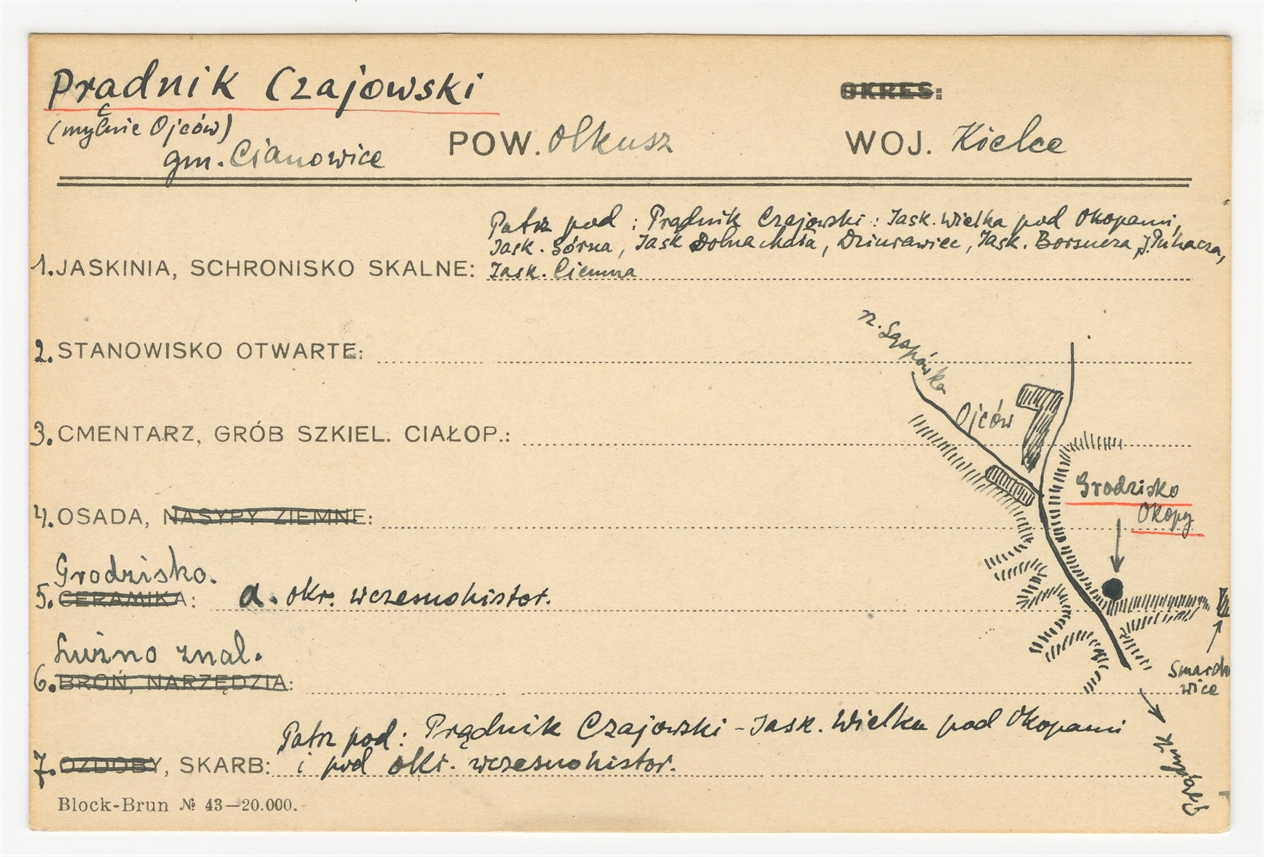 Prądnik Czajowski
OKRES:
(mylnie Ojców)
gm. Cianowice POW. Olkusz WOJ. Kielce
Patrz pod: Prądnik Czajowski: Jask. Wielka pod Okopami,
Jask. Górna, Jask. Dolna, Dziurawiec, Jask. J. Puhacza,
1. JASKINIA, SCHRONISKO SKALNE: Jask. Ciemna
2. STANOWISKO OTWARTE:
3. CMENTARZ, GRÓB SZKIEL. CIAŁOP.:
4. OSADA, NASYPY ZIEMNE:
Grodzisko.
5. CERAMIKA: a. okr. wczesnohistor.
Luźno znal.
6. BROŃ, NARZĘDZIA:
Patrz pod: Prądnik Czajowski - Jask. Wielka pod Okopami
7. OZDOBY, SKARB: i pod okr. wczesnohistor.
Block-Brun № 43—20.000.
r. Sąspówka
Ojców
Grodzisko
Okopy
Smardzo
wice
Prądnik